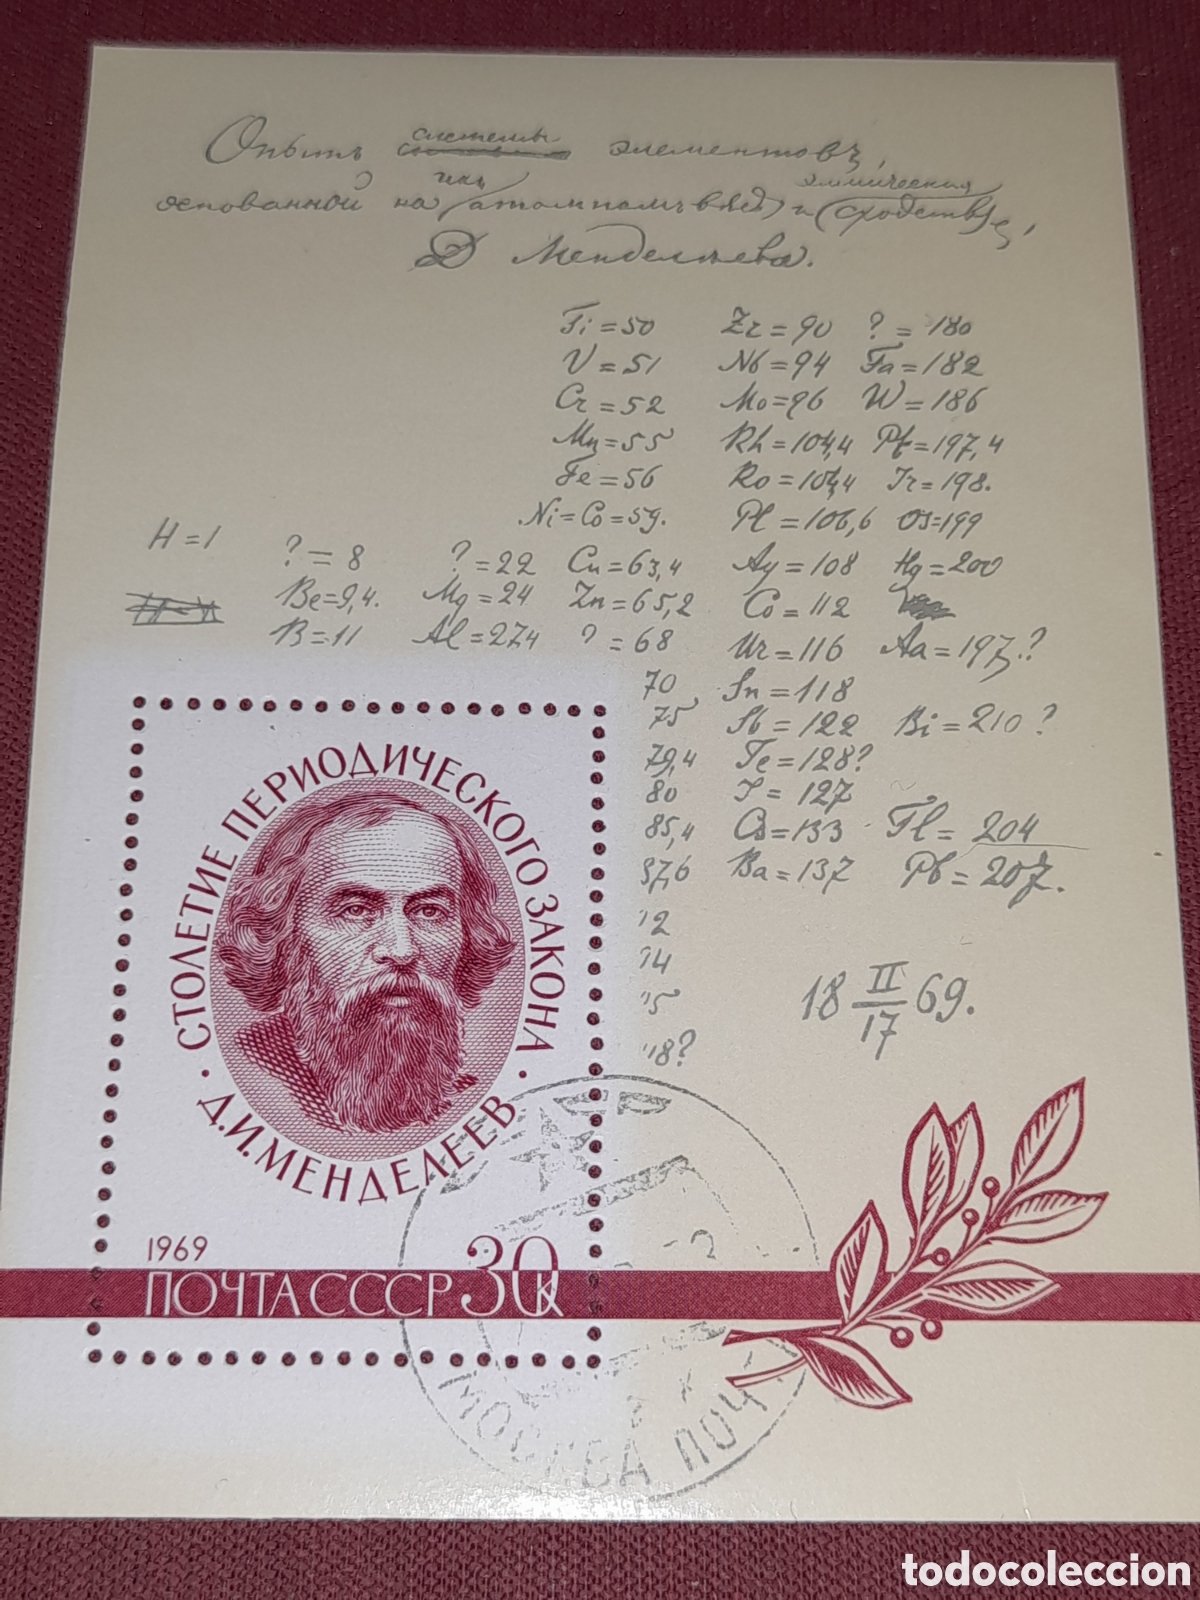 Опытъ системы элементовъ,
основанной на ихъ атомномъ вѣсѣ и химическомъ сходствѣ,
Д Менделѣева.
Ti = 50 Zr = 90 ? = 180
V = 51 Nb = 94 Ta = 182
Cr = 52 Mo = 96 W = 186
Mn = 55 Rh = 104,4 Pt = 197,4
Fe = 56 Ro = 104,4 Ir = 198.
Ni = Co = 59. Pl = 106,6 Os = 199
H = 1 ? = 8 ? = 22 Cu = 63,4 Ag = 108 Hg = 200
Be = 9,4. Mg = 24 Zn = 65,2 Cd = 112
B = 11 Al = 27,4 ? = 68 Ur = 116 Au = 197?
70 Sn = 118
75 Sb = 122 Bi = 210?
79,4 Te = 128?
80 I = 127
85,4 Cs = 133 Tl = 204
87,6 Ba = 137 Pb = 207.
'2
'4
'5
'18?
18 II/17 69.
СТОЛЕТИЕ ПЕРИОДИЧЕСКОГО ЗАКОНА
· Д.И. МЕНДЕЛЕЕВ ·
1969
ПОЧТА СССР 30 К
МОСКВА ПОЧТ
todocoleccion